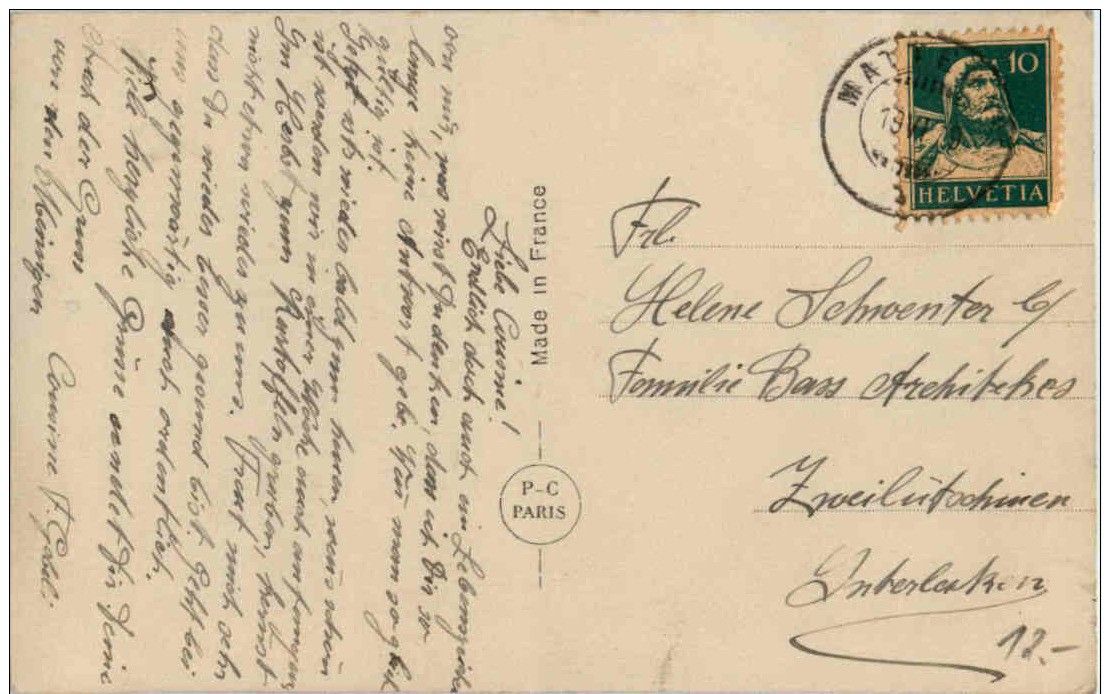 Liebe Cousine!
Endlich doch auch ein Lebenszeichen
von mir, was wirst Du denken, dass ich Dir so
lange keine Antwort gebe. Wenn man so
ist
Jetzt ists wieder bald zum heuen, wenns schön
ist werden wir in einer Woche auch anfangen.
Im Herbst zum Kartoffeln graben, kommst
mich wieder zu uns. Freut mich sehr
dass Du wieder gesund bist. Geht bei
uns gegenwärtig auch ordentlich.
Viele herzliche Grüsse sendet Dir Deine
Cousine
von den Meinigen
Made in France
P-C
PARIS
10
HELVETIA
Frl.
Helene Schwenter c/
Familie Bass Architekes
Zweilütschinen
Interlaken
12.-